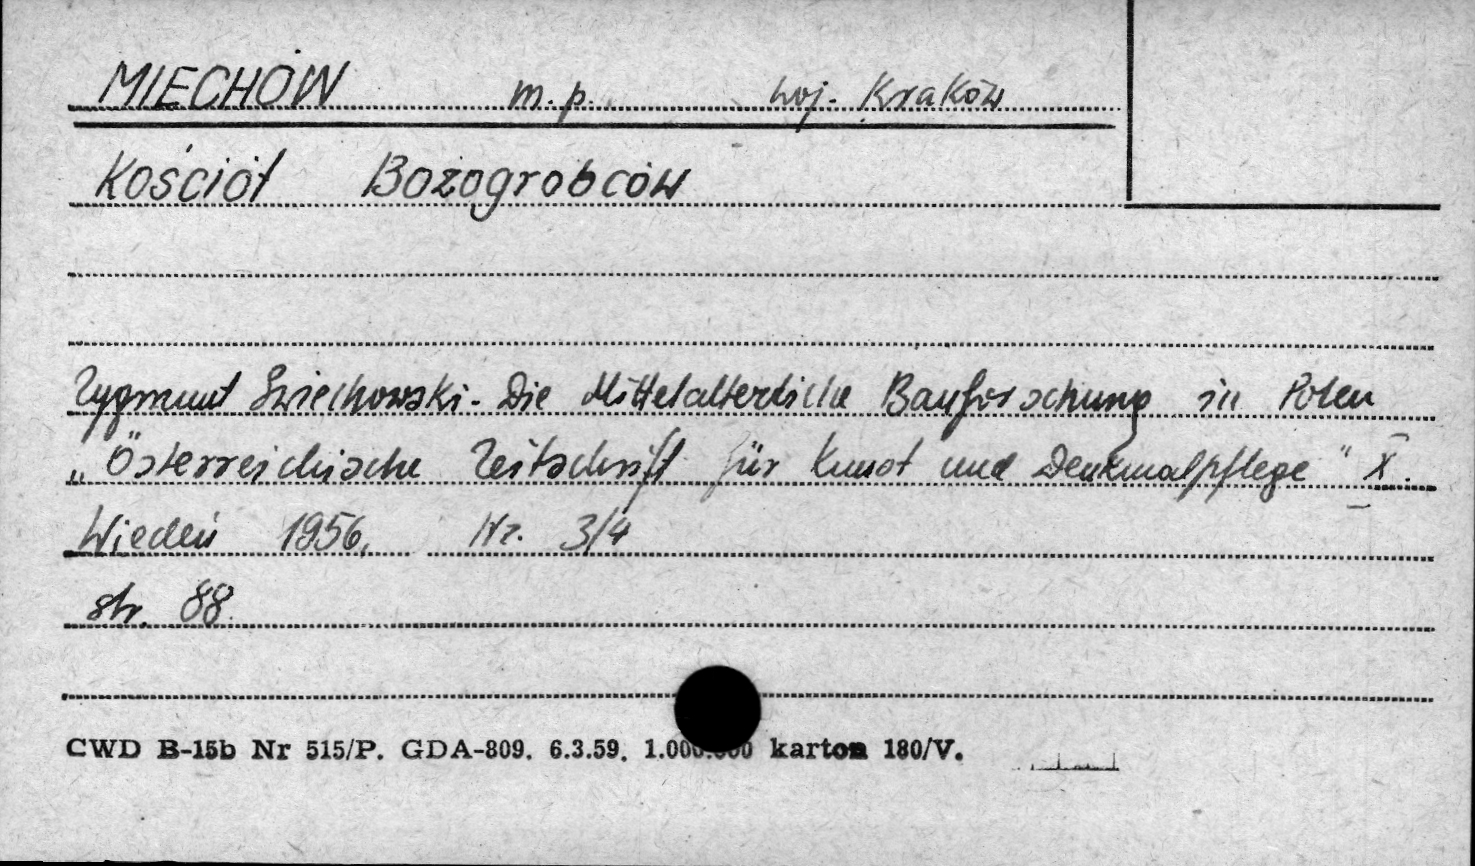 MIECHÓW m.p. woj. Kraków
Kościół Bożogrobców
Zygmunt Świechowski - Die Mittelalterliche Bauforschung in Polen
„Österreichische Zeitschrift für Kunst und Denkmalpflege" X.
Wiedeń 1956, Nr. 3/4
str. 88.
CWD B-15b Nr 515/P. GDA-809. 6.3.59. 1.000.000 karton 180/V.